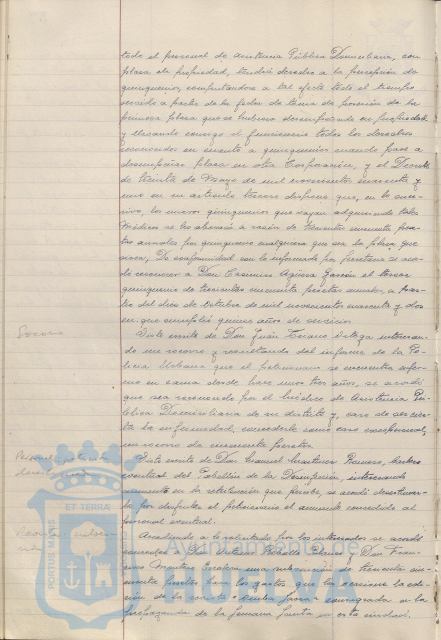 todo el personal de Asistencia Pública Domiciliaria, con
plaza en propiedad, tendrá derecho a la percepción de
quinquenios, computandose a tal efecto todo el tiempo
servido a partir de la fecha de toma de posesión de la
primera plaza que se hubiera desempeñado en propiedad
y llevando consigo el funcionario todos los derechos
reconocidos en cuanto a quinquenios cuando pase a
desempeñar plaza en otra Corporación, y el Decreto
de treinta de Mayo de mil novecientos cuarenta y
uno en su artículo tercero dispone que, en lo suce-
sivo, los nuevos quinquenios que vayan adquiriendo tales
Médicos se les abonarán a razón de trescientas cincuenta pese-
tas anuales por quinquenio cualquiera que sea la plaza que
sirvan, De conformidad con lo informado por Secretaría se acor-
dó reconocer a Don Casimiro Garzón el tercer
quinquenio de trescientas cincuenta pesetas anuales, a par-
tir del dia de Octubre de mil novecientos cuarenta y dos
en que cumplió quince años de servicios.
Socorro
Visto escrito de Don Juan Ortega interesan-
do un socorro y resultando del informe de la Po-
licia Urbana que el peticionario se encuentra enfer-
mo en cama desde hace unos tres años, se acordó
que sea reconocido por el Médico de Asistencia Pú-
blica Domiciliaria de su distrito y, caso de ser cier-
ta la enfermedad, concederle como caso excepcional,
un socorro de cincuenta pesetas.
Visto escrito de Don Manuel Martinez Romero,
eventual del Pabellón de la Desinfección, interesando
aumento en la retribución que percibe, se acordó desestimar-
la por disfrutar el peticionario el aumento concedido al
personal eventual.
Accediendo a lo solicitado por los interesados se acordó
conceder a Don Antonio y Don Fran-
cisco Montero una subvención de trescientas cin-
cuenta pesetas para los gastos que les ocasione la edi-
ción de la revista "Semana Santa" consagrada a la
propaganda de la Semana Santa en esta ciudad.
PORTUS MARIS ET TERRÆ CUSTODIA
Ayuntamiento de
HUELVA